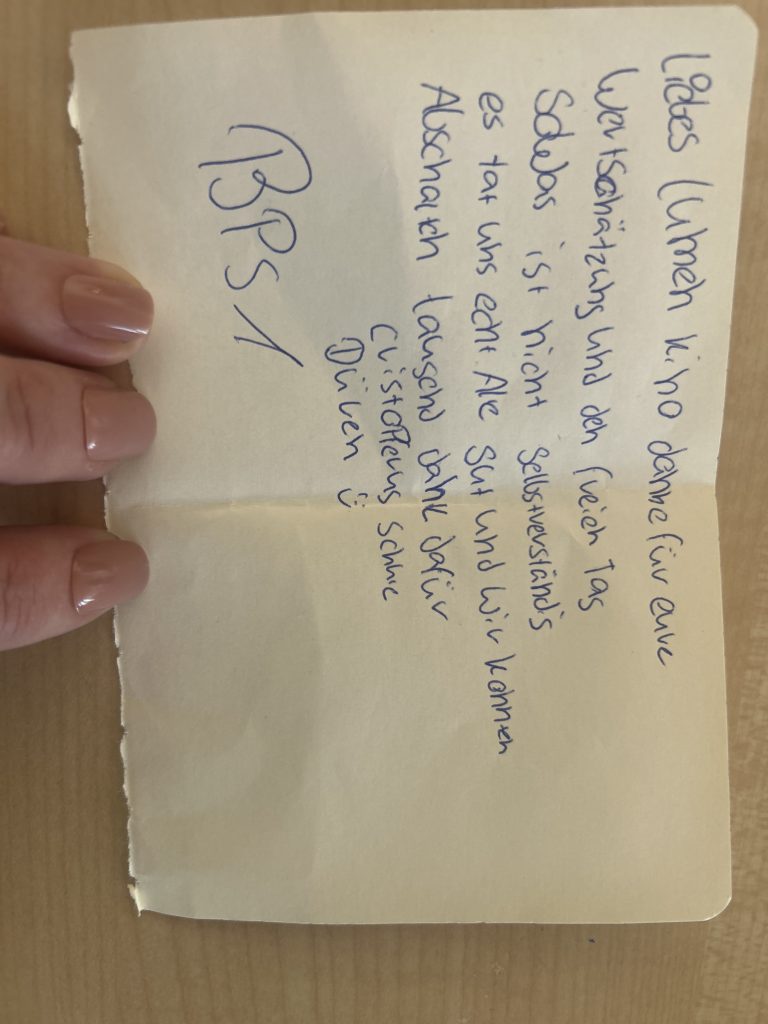 Liebes Lumen Kino danke für eure
Wertschätzung und den freien Tag
Sowas ist nicht selbstverständis
es tat uns echt Alle gut und wir konnten
Abschalten tausend dank dafür
Cristofferus Schule
Düren ü
BPS 1